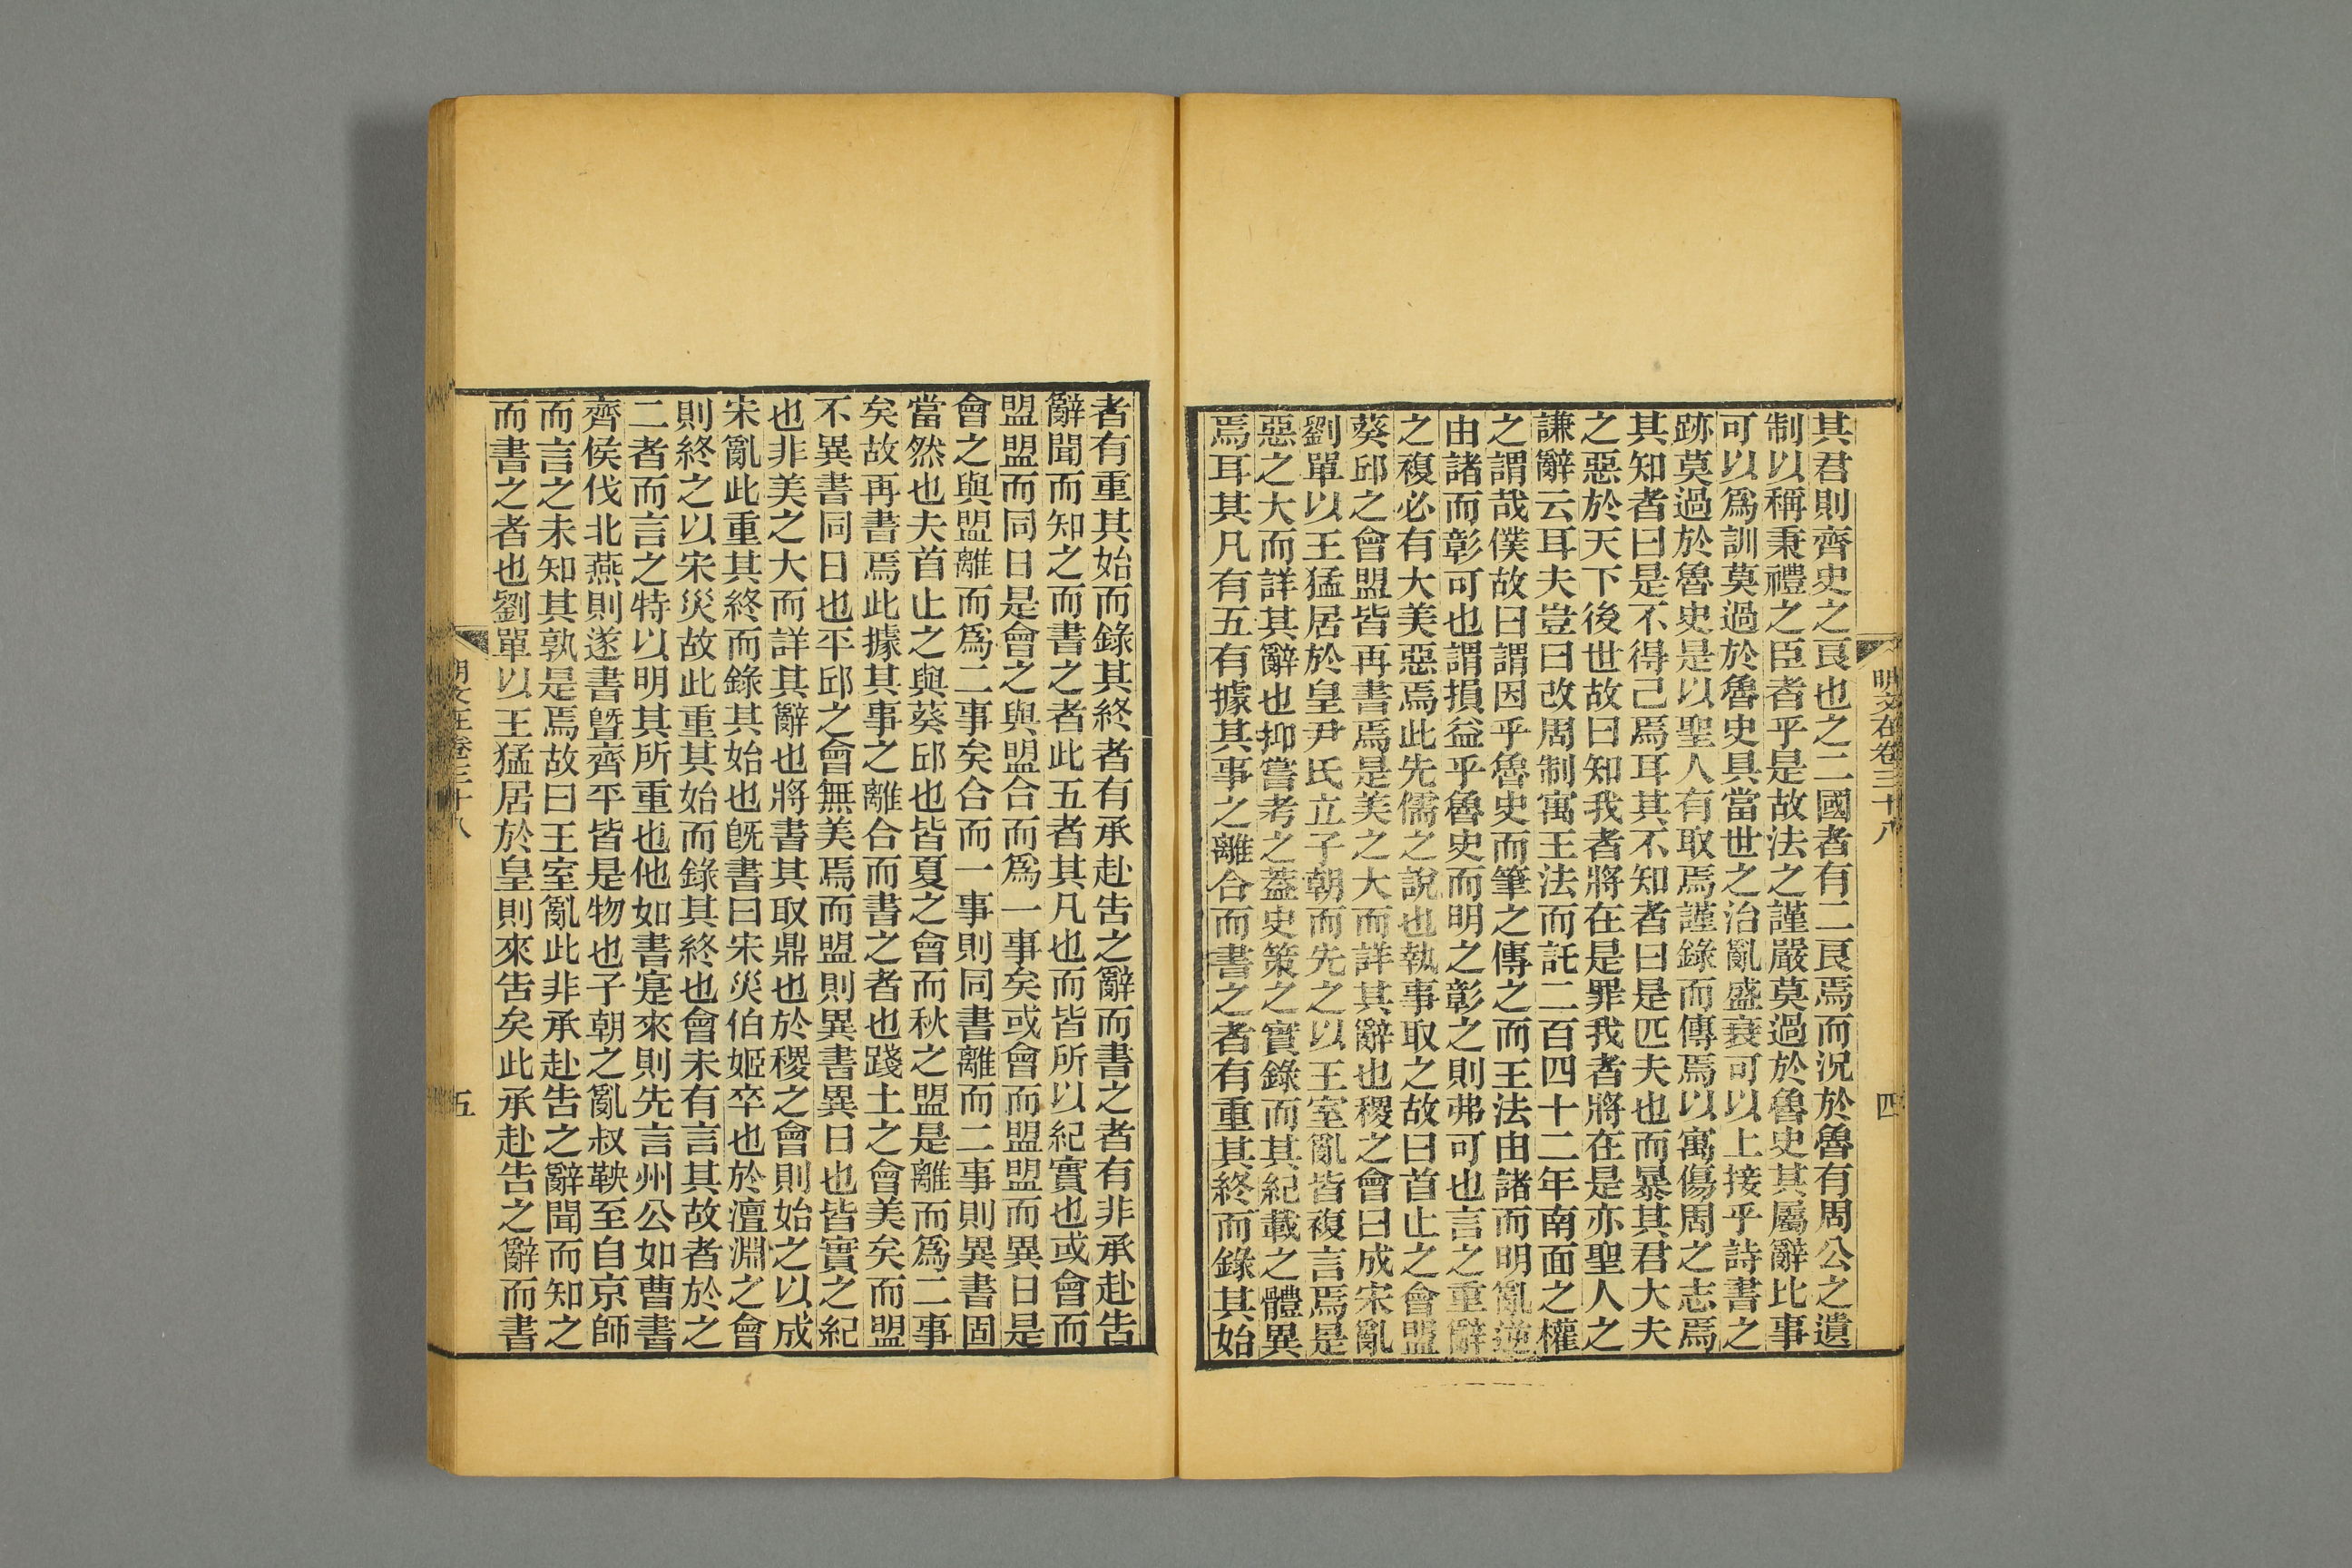 明文在卷三十八
四
其君則齊史之良也之二國者有二良焉而況於魯有周公之遺
制以稱秉禮之臣者乎是故法之謹嚴莫過於魯史其屬辭比事
可以爲訓莫過於魯史具當世之治亂盛衰可以上接乎詩書之
跡莫過於魯史是以聖人有取焉謹錄而傳焉以寓傷周之志焉
其知者曰是不得已焉耳其不知者曰是匹夫也而暴其君大夫
之惡於天下後世故曰知我者將在是罪我者將在是亦聖人之
謙辭云耳夫豈曰改周制寓王法而託二百四十二年南面之權
之謂哉僕故曰謂因乎魯史而筆之傳之而王法由諸而明亂逆
由諸而彰可也謂損益乎魯史而明之彰之則弗可也言之重辭
之複必有大美惡焉此先儒之說也執事取之故曰首止之會盟
葵邱之會盟皆再書焉是美之大而詳其辭也稷之會曰成宋亂
劉單以王猛居於皇尹氏立子朝而先之以王室亂皆複言焉是
惡之大而詳其辭也抑嘗考之蓋史策之實錄而其紀載之體異
焉耳其凡有五有據其事之離合而書之者有重其終而錄其始
者有重其始而錄其終者有承赴告之辭而書之者有非承赴告
辭聞而知之而書之者此五者其凡也而皆所以紀實也或會而
盟盟而同日是會之與盟合而爲一事矣或會而盟盟而異日是
會之與盟離而爲二事矣合而一事則同書離而二事則異書固
當然也夫首止之與葵邱也皆夏之會而秋之盟是離而爲二事
矣故再書焉此據其事之離合而書之者也踐土之會美矣而盟
不異書同日也平邱之會無美焉而盟則異書異日也皆實之紀
也非美之大而詳其辭也將書其取鼎也於稷之會則始之以成
宋亂此重其終而錄其始也旣書曰宋災伯姬卒也於澶淵之會
則終之以宋災故此重其始而錄其終也會未有言其故者於之
二者而言之特以明其所重也他如書寔來則先言州公如曹書
齊侯伐北燕則遂書曁齊平皆是物也子朝之亂叔鞅至自京師
而言之未知其孰是焉故曰王室亂此非承赴告之辭聞而知之
而書之者也劉單以王猛居於皇則來告矣此承赴告之辭而書
明文在卷三十八
五